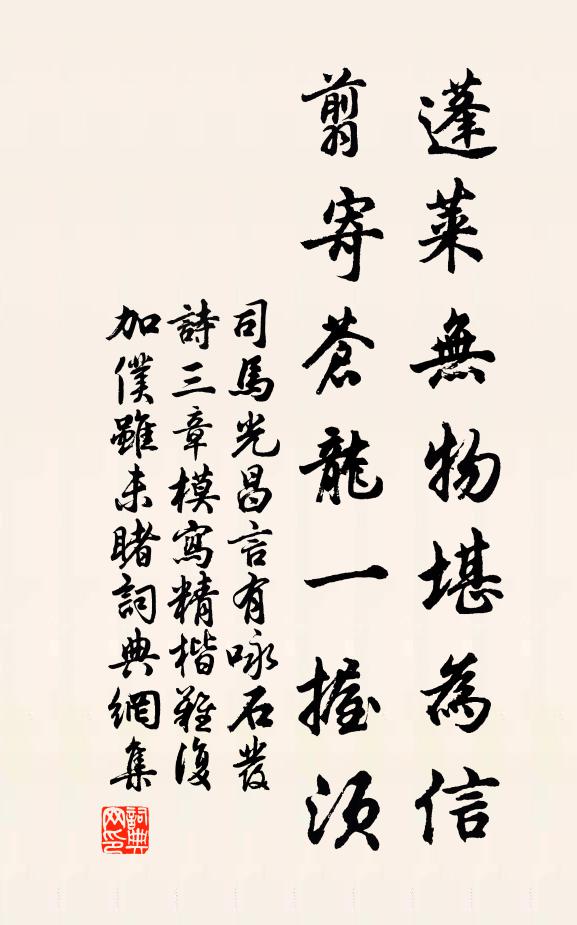 蓬萊無物堪為信
翦寄蒼龍一握須
司馬光昌言有咏石髮
詩三章模寫精楷難復
加僕雖未睹詞典網集
詞典網印